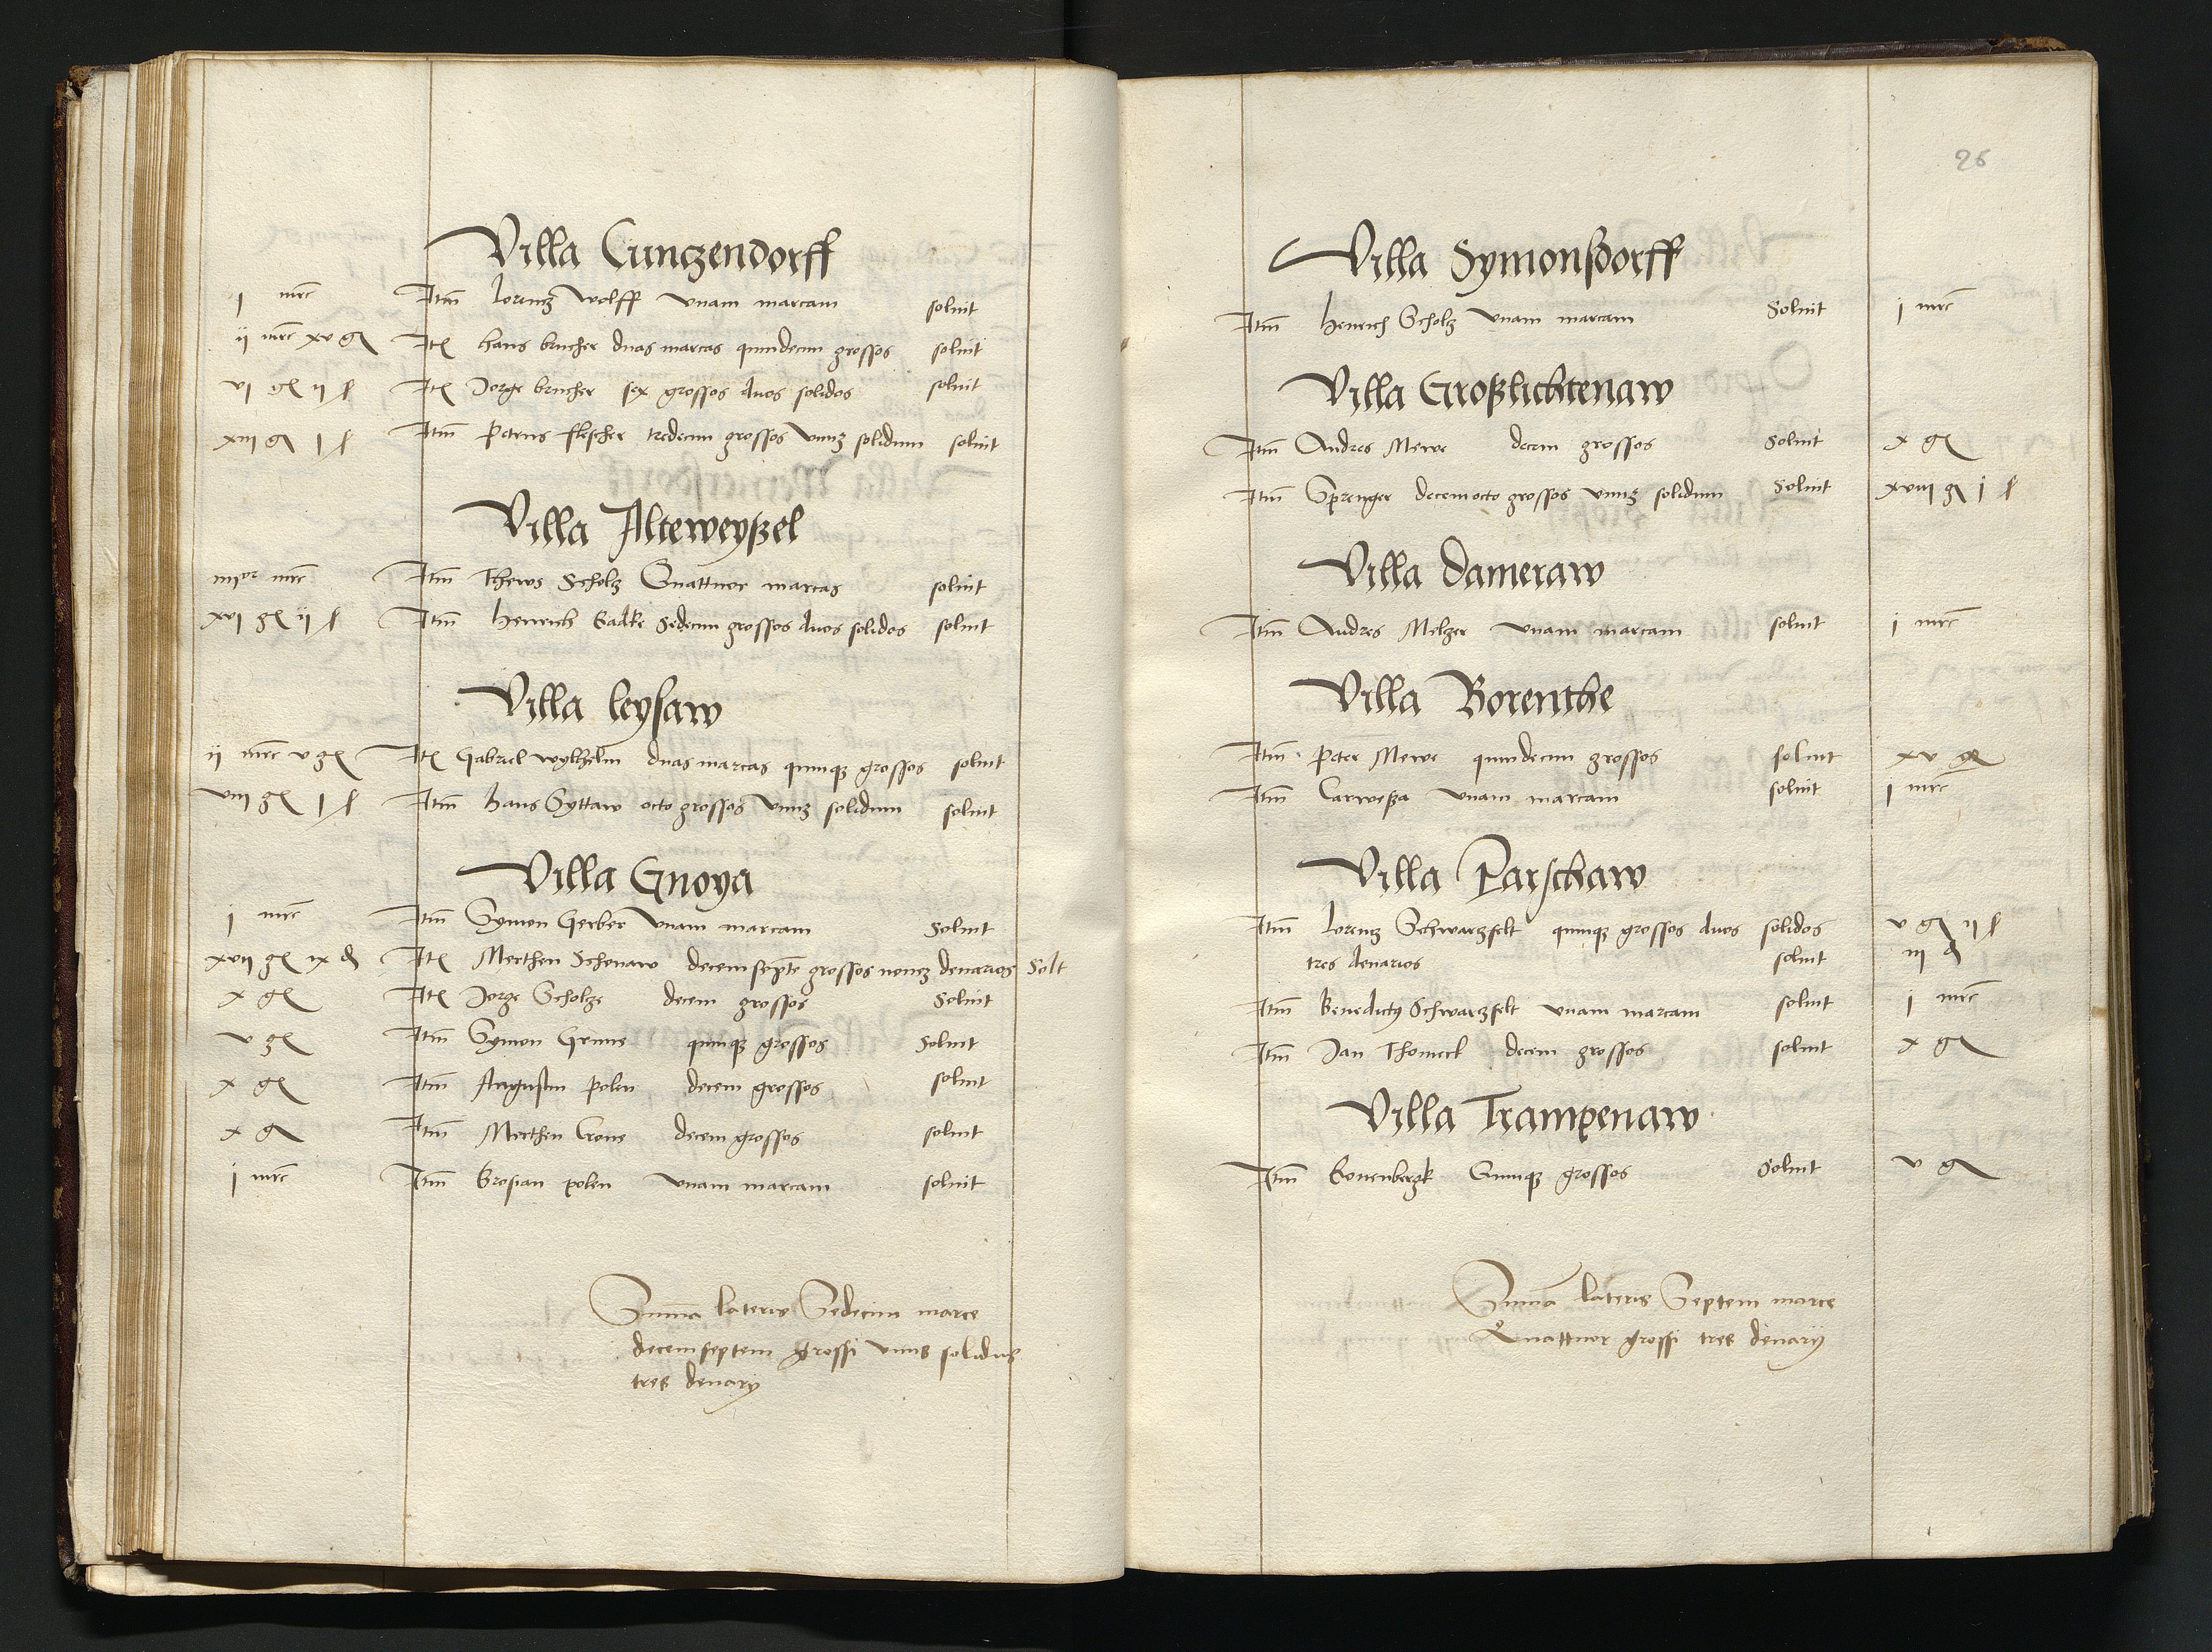 Villa Cunczendorff
j mrc Itm Lorentz Wolff vnam marcam soluit
ij mrc xv g Ite hans brucher duas marcas quindecim grossos soluit
vj g ij ß Ite Jorge brucher sex grossos duos solidos soluit
xiij g j ß Itm Petrus flescher tredecim grossos vnuz solidum soluit
Villa Alteweyßel
iiijor mrc Itm Thews Scholz Quattuor marcas soluit
xvj g ij ß Itm Henrich Radke Sedecim grossos duos solidos soluit
Villa leysaw
ij mrc v g Ite Gabriel wylhelm duas marcas quinqz grossos soluit
viij g j ß Itm hans Syttaw octo grossos vnuz solidum soluit
Villa Gnoya
j mrc Itm Symon Gerber vnam marcam Soluit
xvij g ix d Ite Merthen Schonaw decemsepte grossos nouez denarios Solt
x g Ite Jorge Scholze decem grossos Soluit
v g Itm Symon Gruus quinqz grossos Soluit
x g Itm Augustin polen decem grossos soluit
x g Itm Merthen Crone decem grossos soluit
j mrc Itm Brosian polen vnam marcam soluit
Suma lateris Sedecim marce
decemseptem grossi vnus solidus
tres denarij
26
Villa Symonßdorff
Itm Henrich Scholz vnam marcam Soluit j mrc
Villa Großlichtenaw
Itm Andres Mewe decem grossos Soluit x g
Itm Sprenger decemocto grossos vnuz solidum Soluit xviij g j ß
Villa Dameraw
Itm Andres Melzer vnam marcam soluit j mrc
Villa Borenthe
Itm Peter Mewe quindecim grossos soluit xv g
Itm Carweßa vnam marcam soluit j mrc
Villa Parschaw
Itm Lorentz Schwarzfelt quinqz grossos duos solidos v g ij ß
tres denarios soluit iij d
Itm Benedictus Schwarzfelt vnam marcam soluit j mrc
Itm Jan Thomecl decem grossos soluit x g
Villa Trampenaw
Itm Ronenbergk Quinqz grossos Soluit v g
Suma lateris Septem marce
Quattuor grossi tres denarij